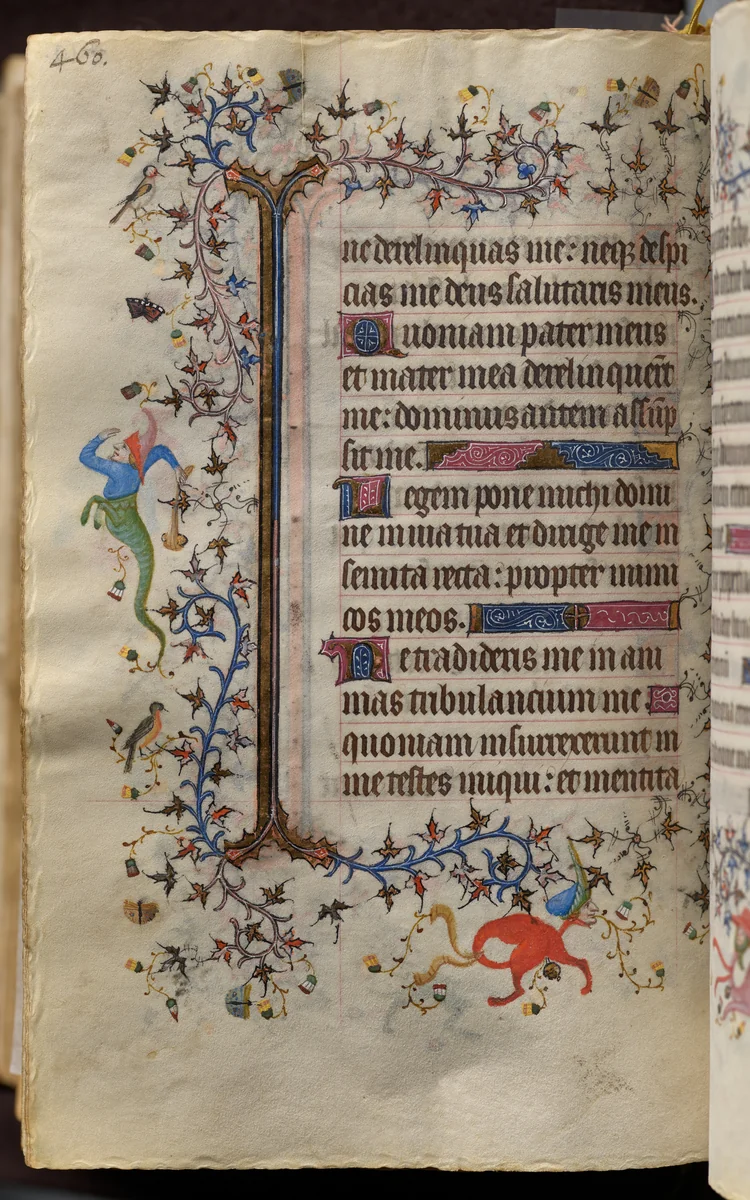 460.
ne derelinquas me: neqꝫ despi
cias me deus salutaris meus.
Quoniam pater meus
et mater mea derelinquer̄t
me: dominus autem assūp
sit me.
Legem pone michi domi
ne in uia tua et dirige me in
semita recta: propter inimi
cos meos.
Ne tradideris me in ani
mas tribulancium me
quoniam insurrexerunt in
me testes iniqui: et mentita